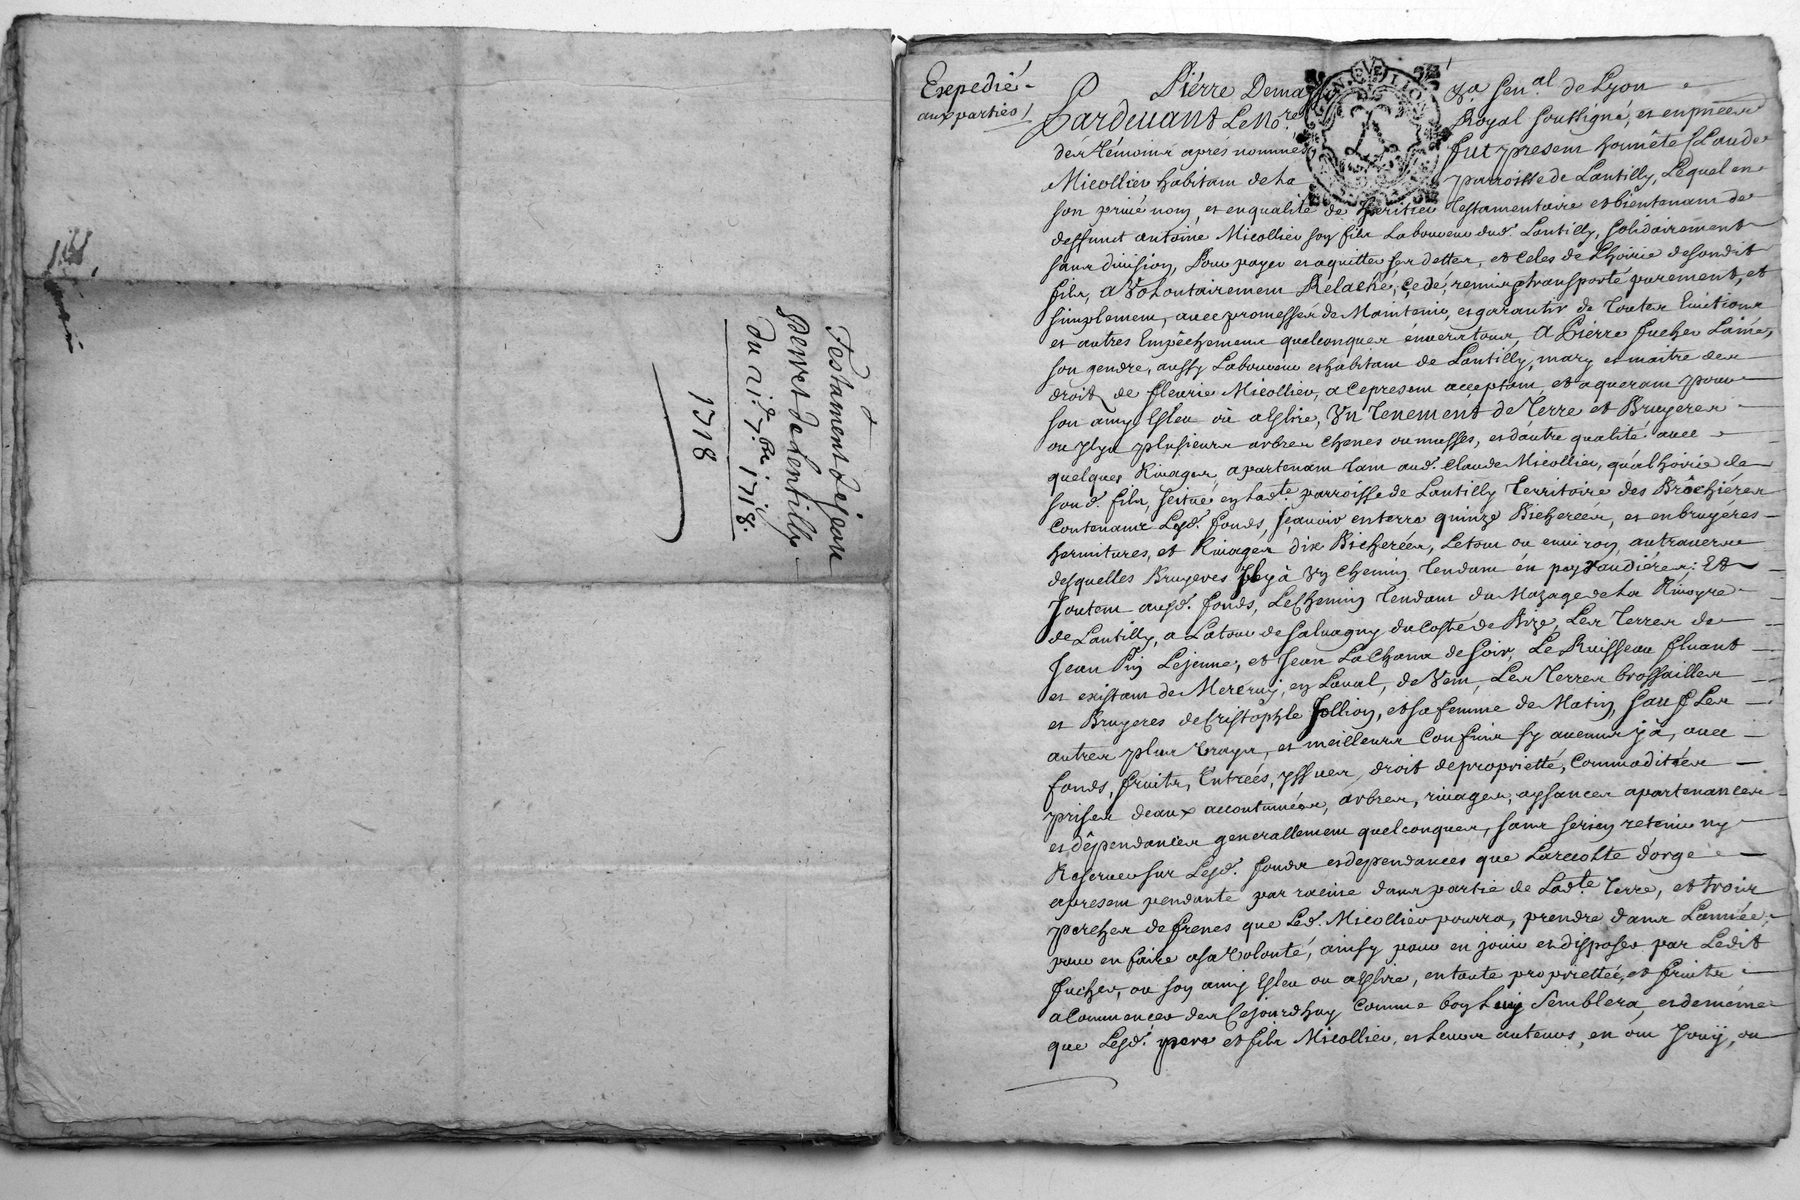 Testament de jean
Perret de Lentilly
du 21.e 7.bre 1718.
1718
Expedié
aux parties
Pierre Dema
ga sen.al de Lyon
Pardevant Le No.re Royal soussigné, et en presence
des Témoins après nommés, fut present honnête Claude
Micollier habitant de La parroisse de Lantilly, Lequel en
son privé nom, et en qualité de heritier Testamentaire et bientenant de
deffunct antoine Micollier son fils Laboureur dud. Lantilly, solidairement
sans division, Pour payer et aquitter ses dettes, et celes de Lhoirie desondit
fils, a Volontairement Relaché, cedé, remis et transporté purement, et
simplement, avec promesses de Maintenir, et garantir de Toutes Evictions
et autres Empêchements quelconques envers tous, A Pierre Jucher Lainé,
son gendre, aussy Laboureur et habitant de Lantilly, mary et maitre des
droits de fleurie Micollier, a ce present acceptant, et aquerant pour
son amy Esleu où a Eslire, Un Tenement de Terre et Bruyeres
ou Il y a plusieurs arbres chenes ou mosses, et dautre qualité avec
quelques Rivages, apartenant Tant aud. Claude Micollier, quà Lhoirie de
sond. fils, scitué en Lad.te parroisse de Lantilly Territoire des Brôchiéres
Contenant Lesd. fonds, sçavoir en terre quinze Bicherées, et en bruyeres
hermitures, et Rivages dix Bicherées, Le tout ou environ, au travers
desquelles Bruyeres Il y à Un Chemin Tendant én
Joutent auxd. fonds, Le Chemin Tendant du Mazage de La Rivoyre
de Lantilly, a La tour de salvagny du costé de Bize, Les Terres de
Jean Pin Lejeune, et Jean La Chana de soir, Le Ruisseau fluant
et existant de Mercruy, en Laval, de Vent, Les Terres brossailles
et Bruyeres de Cristophle Jollion, et sa femme de Matin, sauf Les
autres plus Vrays, et meilleurs Confins sy aucuns y à, avec
fonds, fruits, Entrées, yssues, droit de proprietté, Commodités
prises deaux accoutumées, arbres, rivages, aysances apartenances
et dépendances generallement quelconques, sans se rien retenir ny
Reserver sur Lesd. fonds et dependances que La recolte d'orge
apresent pendante par racine dans partie de Lad.te Terre, et trois
perches de frenes que Led. Micollier pourra, prendre dans Lannée
pour en faire a sa Volonté, ainsy pour en jouir et disposer par Ledit
Jucher, ou son amy Esleu ou a Eslire, en toute propriettée, et fruits
a Commencer des Cejourdhuy comme bon Luy Semblera, et de méme
que Lesd. pere et fils Micollier, et Leurs auteurs, en ont Jouÿ, ou